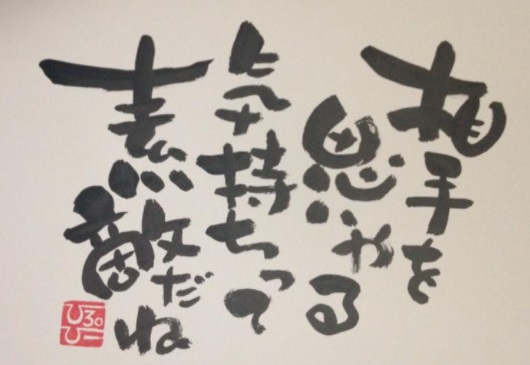 相手を
思いやる
気持ちって
素敵だね